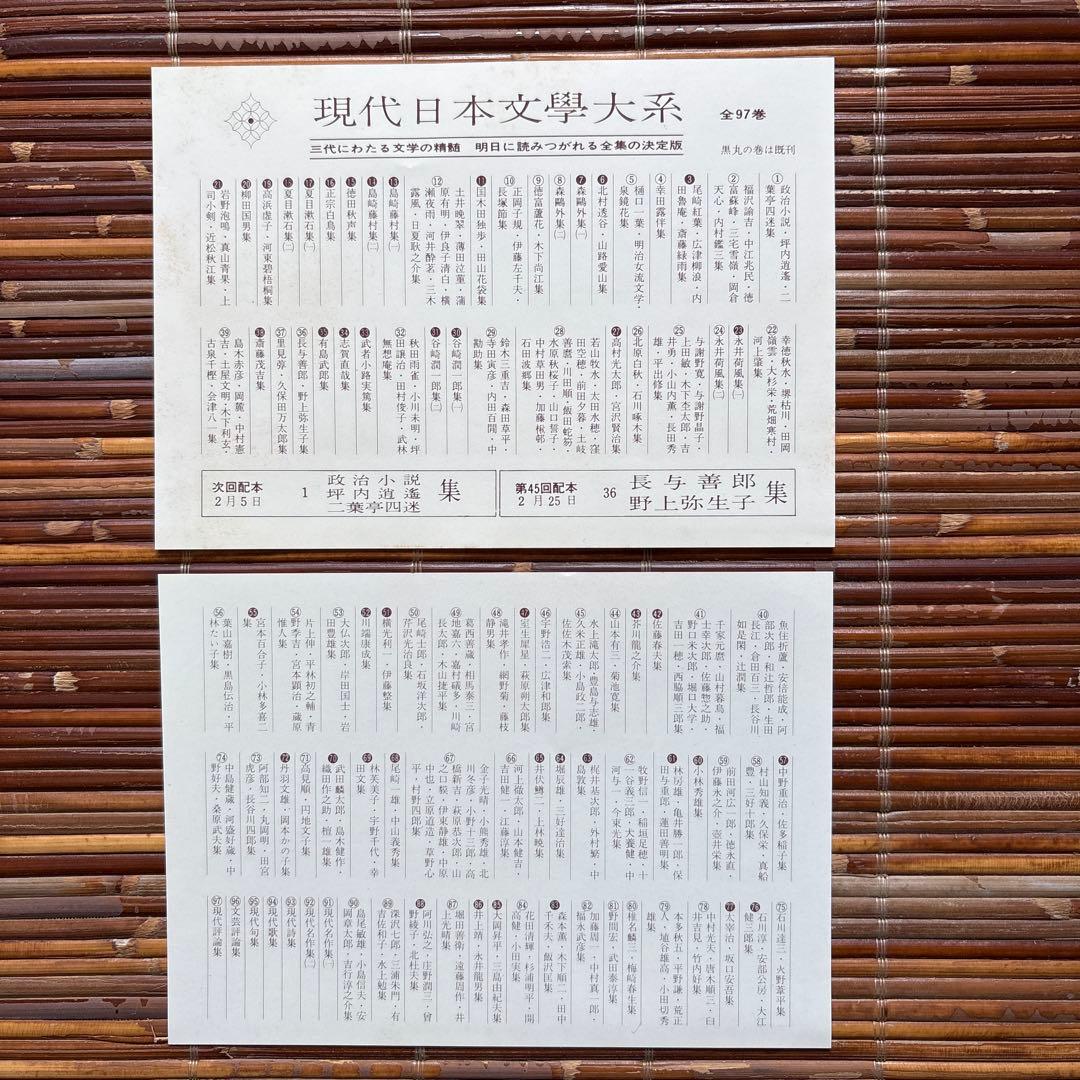 現代日本文學大系
全97巻
三代にわたる文学の精髄 明日に読みつがれる全集の決定版
黒丸の巻は既刊
①政治小説・坪内逍遙・二
葉亭四迷集
②福沢諭吉・中江兆民・徳
富蘇峰・三宅雪嶺・岡倉
天心・内村鑑三集
❸尾崎紅葉・広津柳浪・内
田魯庵・斎藤緑雨集
④幸田露伴集
⑤樋口一葉・明治女流文学・
泉鏡花集
❻北村透谷・山路愛山集
❼森鷗外集㈠
⑧森鷗外集㈡
⑨徳富蘆花・木下尚江集
⑩正岡子規・伊藤左千夫・
長塚節集
⓫国木田独歩・田山花袋集
⑫土井晩翠・薄田泣菫・蒲
原有明・伊良子清白・横
瀬夜雨・河井酔茗・三木
露風・日夏耿之介集
⓭島崎藤村集㈠
⓮島崎藤村集㈡
⓯徳田秋声集
⓰正宗白鳥集
⓱夏目漱石集㈠
⓲夏目漱石集㈡
⓳高浜虚子・河東碧梧桐集
⓴柳田国男集
㉑岩野泡鳴・真山青果・上
司小剣・近松秋江集
㉒幸徳秋水・堺枯川・田岡
嶺雲・大杉栄・荒畑寒村・
河上肇集
㉓永井荷風集㈠
㉔永井荷風集㈡
㉕与謝野寛・与謝野晶子・
上田敏・木下杢太郎・吉
井勇・小山内薫・長田秀
雄・平出修集
㉖北原白秋・石川啄木集
㉗高村光太郎・宮沢賢治集
㉘若山牧水・太田水穂・窪
田空穂・前田夕暮・土岐
善麿・川田順・飯田蛇笏・
水原秋桜子・山口誓子・
中村草田男・加藤楸邨・
石田波郷集
㉙鈴木三重吉・森田草平・
寺田寅彦・内田百閒・中
勘助集
㉚谷崎潤一郎集㈠
㉛谷崎潤一郎集㈡
㉜秋田雨雀・小川未明・坪
田譲治・田村俊子・武林
無想庵集
㉝武者小路実篤集
㉞志賀直哉集
㉟有島武郎集
㊱長与善郎・野上弥生子集
㊲里見弴・久保田万太郎集
㊳斎藤茂吉集
㊴島木赤彦・岡麓・中村憲
吉・土屋文明・木下利玄・
古泉千樫・会津八一集
次回配本
2月5日
1
政治小説
坪内逍遙
二葉亭四迷
集
第45回配本
2月25日
36
長与善郎
野上弥生子
集
㊵魚住折蘆・安倍能成・阿
部次郎・和辻哲郎・生田
長江・倉田百三・長谷川
如是閑・辻潤集
㊶千家元麿・山村暮鳥・福
士幸次郎・佐藤惣之助・
野口米次郎・堀口大学・
吉田一穂・西脇順三郎集
㊷佐藤春夫集
㊸芥川龍之介集
㊹山本有三・菊池寛集
㊺水上滝太郎・豊島与志雄・
久米正雄・小島政二郎・
佐佐木茂索集
㊻宇野浩二・広津和郎集
㊼室生犀星・萩原朔太郎集
㊽滝井孝作・網野菊・藤枝
静男集
㊾葛西善蔵・相馬泰三・宮
地嘉六・嘉村礒多・川崎
長太郎・木山捷平集
㊿尾崎士郎・石坂洋次郎・
芹沢光治良集
51横光利一・伊藤整集
52川端康成集
53大仏次郎・岸田国士・岩
田豊雄集
54片上伸・平林初之輔・青
野季吉・宮本顕治・蔵原
惟人集
55宮本百合子・小林多喜二
集
56葉山嘉樹・黒島伝治・平
林たい子集
57中野重治・佐多稲子集
58村山知義・久保栄・真船
豊・三好十郎集
59前田河広一郎・徳永直・
伊藤永之介・壺井栄集
60小林秀雄集
61林房雄・亀井勝一郎・保
田与重郎・蓮田善明集
62牧野信一・稲垣足穂・十
一谷義三郎・犬養健・中
河与一・今東光集
63梶井基次郎・外村繁・中
島敦集
64堀辰雄・三好達治集
65井伏鱒二・上林暁集
66河上徹太郎・山本健吉・
吉田健一・江藤淳集
67金子光晴・小熊秀雄・北
川冬彦・小野十三郎・高
橋新吉・萩原恭次郎・山
之口貘・伊東静雄・中原
中也・立原道造・草野心
平・村野四郎集
68尾崎一雄・中山義秀集
69林芙美子・宇野千代・幸
田文集
70武田麟太郎・島木健作・
織田作之助・檀一雄集
71高見順・円地文子集
72丹羽文雄・岡本かの子集
73阿部知二・丸岡明・田宮
虎彦・長谷川四郎集
74中島健蔵・河盛好蔵・中
野好夫・桑原武夫集
75石川達三・火野葦平集
76石川淳・安部公房・大江
健三郎集
77太宰治・坂口安吾集
78中村光夫・唐木順三・臼
井吉見・竹内好集
79本多秋五・平野謙・荒正
人・埴谷雄高・小田切秀
雄集
80椎名麟三・梅崎春生集
81野間宏・武田泰淳集
82加藤周一・中村真一郎・
福永武彦集
83森本薫・木下順二・田中
千禾夫・飯沢匡集
84花田清輝・杉浦明平・開
高健・小田実集
85大岡昇平・三島由紀夫集
86井上靖・永井龍男集
87堀田善衛・遠藤周作・井
上光晴集
88阿川弘之・庄野潤三・曽
野綾子・北杜夫集
89深沢七郎・三浦朱門・有
吉佐和子・水上勉集
90島尾敏雄・小島信夫・安
岡章太郎・吉行淳之介集
91現代名作集㈠
92現代名作集㈡
93現代詩集
94現代歌集
95現代句集
96文芸評論集
97現代評論集